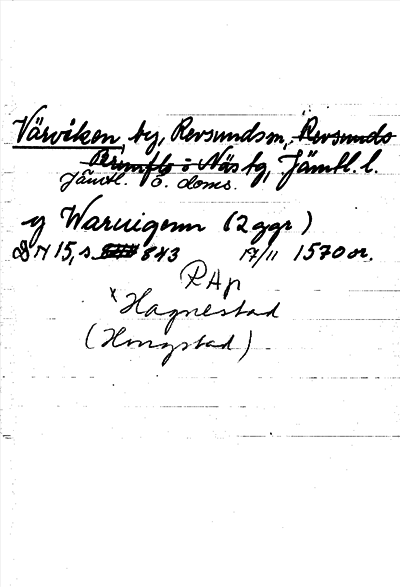 Värviken, by, Revsunds sn, Revsunds
Brunflo o Näs tg, Jämtl. l.
Jämtl. ö. doms.
y Waruigenn (2 ggr)
DN 15, s 843 17/11 1570 or.
RAp
x Hagnestad
(Hongstad)